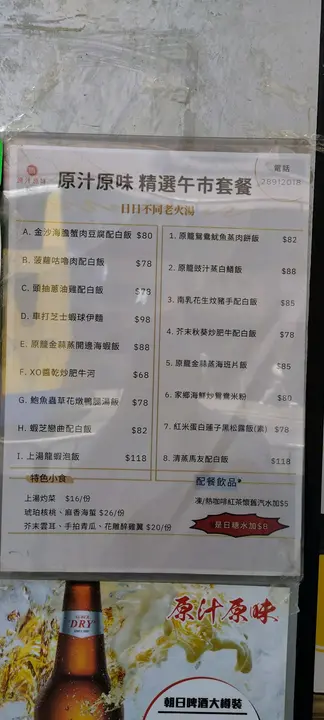 原汁原味
原汁原味 精選午市套餐
電話
28912018
日日不同老火湯
A. 金沙海膽蟹肉豆腐配白飯 $80
B. 菠蘿咕嚕肉配白飯 $78
C. 頭抽蔥油雞配白飯 $78
D. 車打芝士蝦球伊麵 $98
E. 原籠金蒜蒸開邊海蝦飯 $88
F. XO醬乾炒肥牛河 $68
G. 鮑魚蟲草花燉鴨湯飯 $78
H. 蝦芝戀曲配白飯 $82
I. 上湯龍蝦泡飯 $118
1. 原籠鴛鴦魷魚蒸肉餅飯 $82
2. 原籠豉汁蒸白鱔飯 $88
3. 南乳花生炆豬手配白飯 $85
4. 芥末秋葵炒肥牛配白飯 $78
5. 原籠金蒜蒸海班片飯 $85
6. 家鄉海鮮炒鴛鴦米粉 $80
7. 紅米蛋白蓮子黑松露飯(素) $78
8. 清蒸馬友配白飯 $118
特色小食
上湯灼菜 $16/份
琥珀核桃、麻香海蜇 $26/份
芥末雲耳、手拍青瓜、花雕醉雞翼 $20/份
配餐飲品
凍/熱咖啡紅茶懷舊汽水加$5
是日糖水加$8
原汁原味
SUPER
DRY
朝日啤酒大樽裝